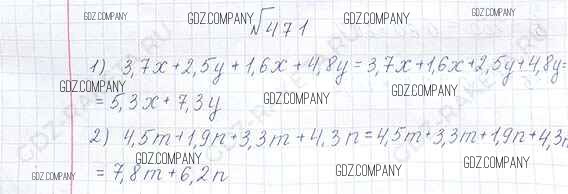 №471
1) 3,7x+2,5y+1,6x+4,8y=3,7x+1,6x+2,5y+4,8y=
=5,3x+7,3y
2) 4,5m+1,9n+3,3m+4,3n=4,5m+3,3m+1,9n+4,3n
=7,8m+6,2n
GDZ.COMPANY
GDZ.COMPANY
GDZ.COMPANY
GDZ.COMPANY
GDZ.COMPANY
GDZ.COMPANY
GDZ.COMPANY
GDZ.COMPANY
GDZ.COMPANY
GDZ.COMPANY
GDZ.COMPANY